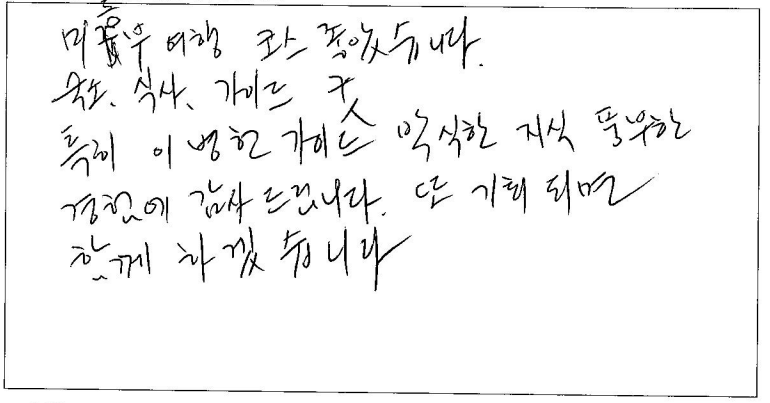 미동부 여행 코스 좋았습니다.
숙소、식사、가이드 굿
특히 이병헌 가이드 박식한 지식 풍부한
경험에 감사드립니다. 또 기회 되면
함께 하겠습니다